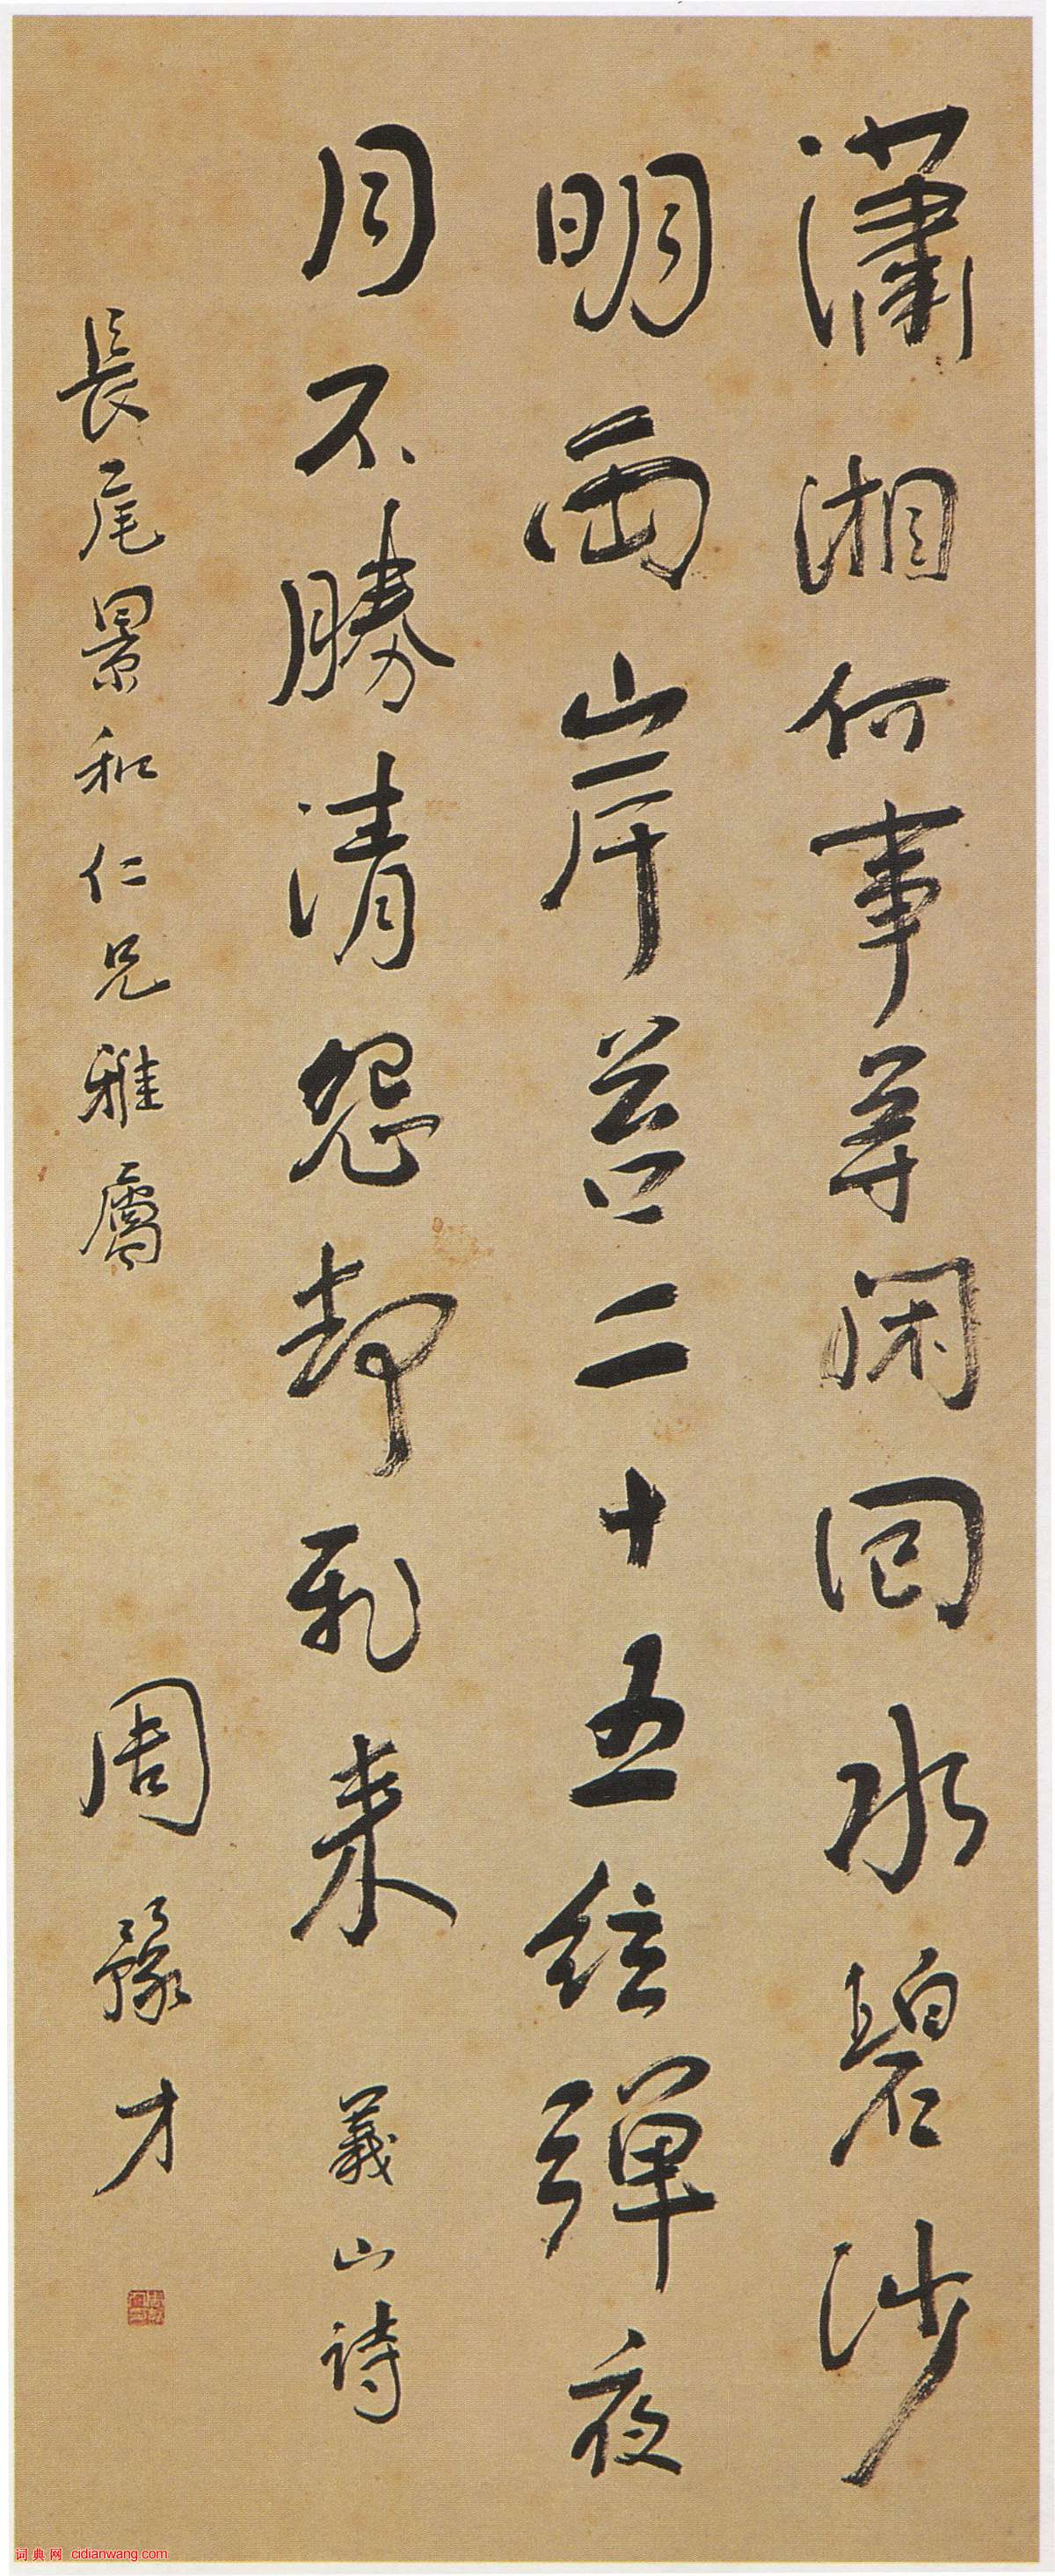 瀟湘何事等閑回水碧沙
明兩岸苔二十五絃彈夜
月不勝清怨却飛來 義山詩
長尾景和仁兄雅屬 周豫才
词典网 cidianwang.com